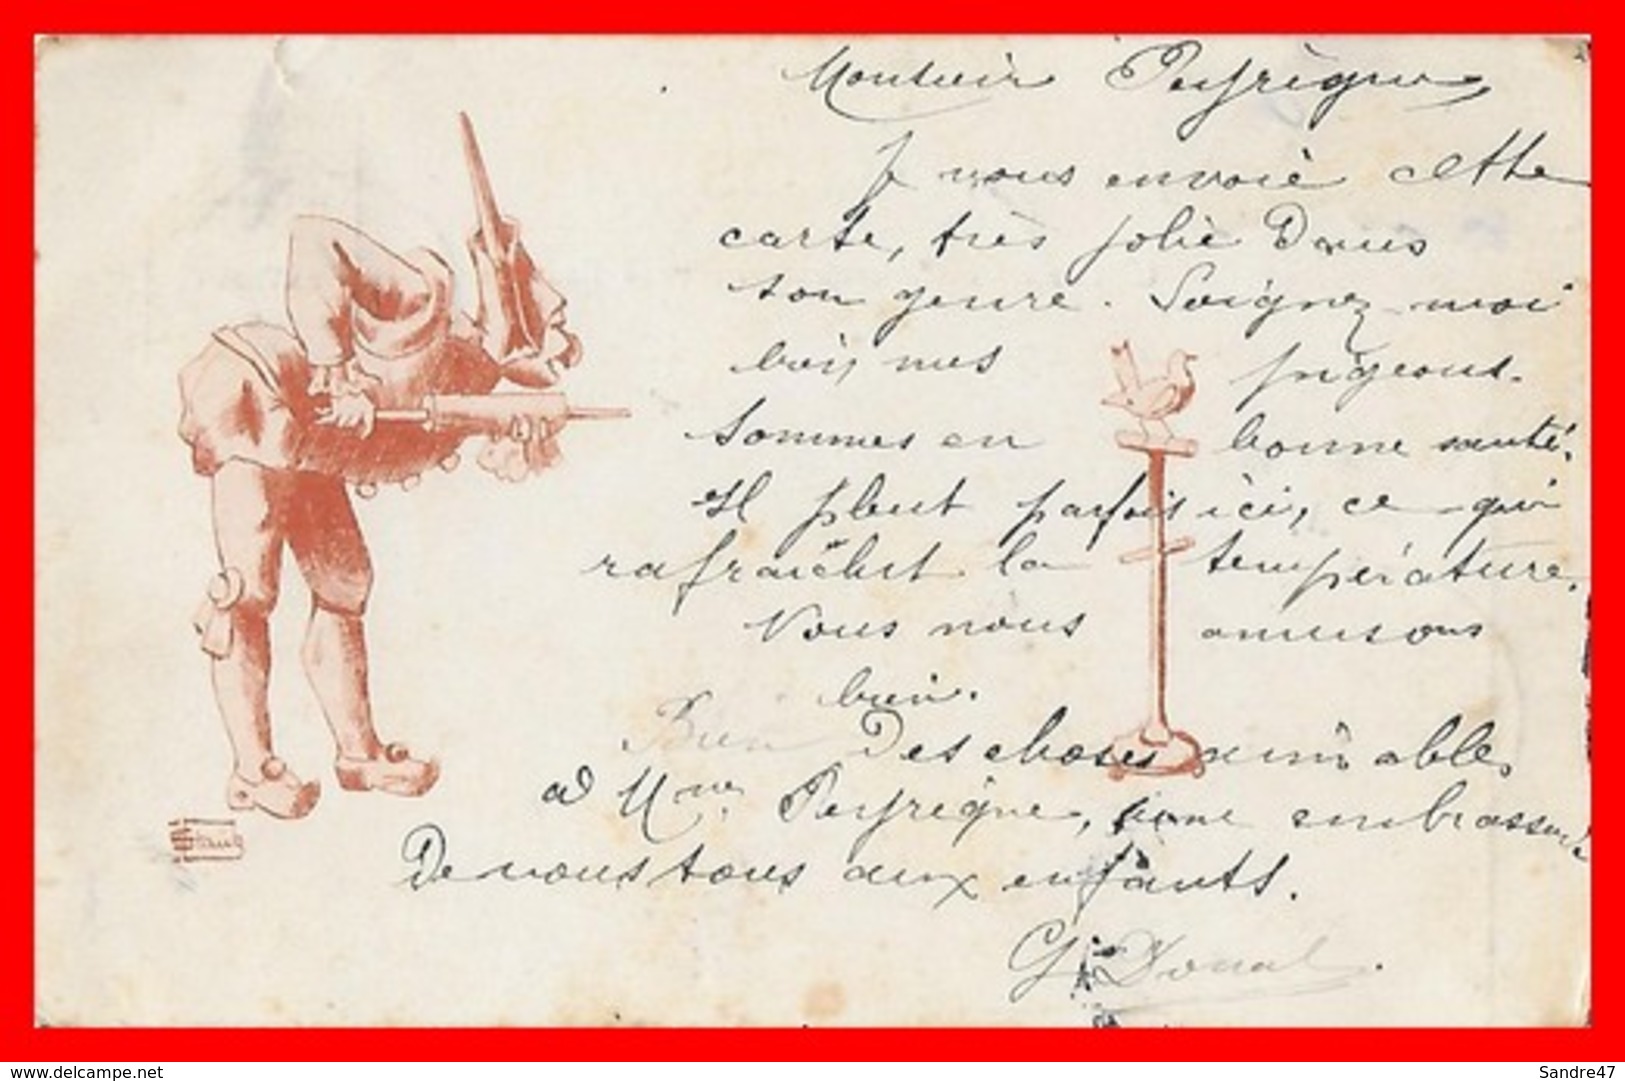 Monsieur Peyrègne,
Je vous envoie cette
carte, très jolie Dans
son genre. Soignez-moi
bien mes pigeons.
Sommes en bonne santé.
Il pleut parfois ici, ce qui
rafraîchit la température.
Nous nous amusons
bien.
Bien Des choses aimables
à Mme Peyrègne, une embrassade
De nous tous aux enfants.
G.
www.delcampe.net
Sandre47